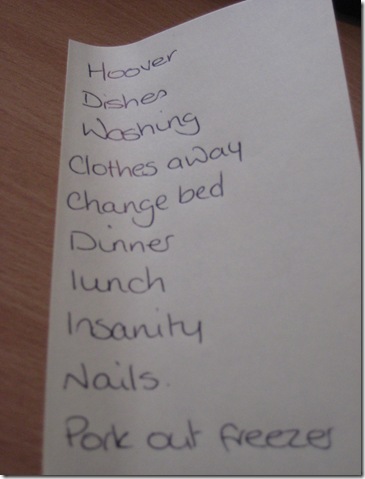 Hoover
Dishes
Washing
Clothes away
Change bed
Dinner
lunch
Insanity
Nails.
Pork out freezer